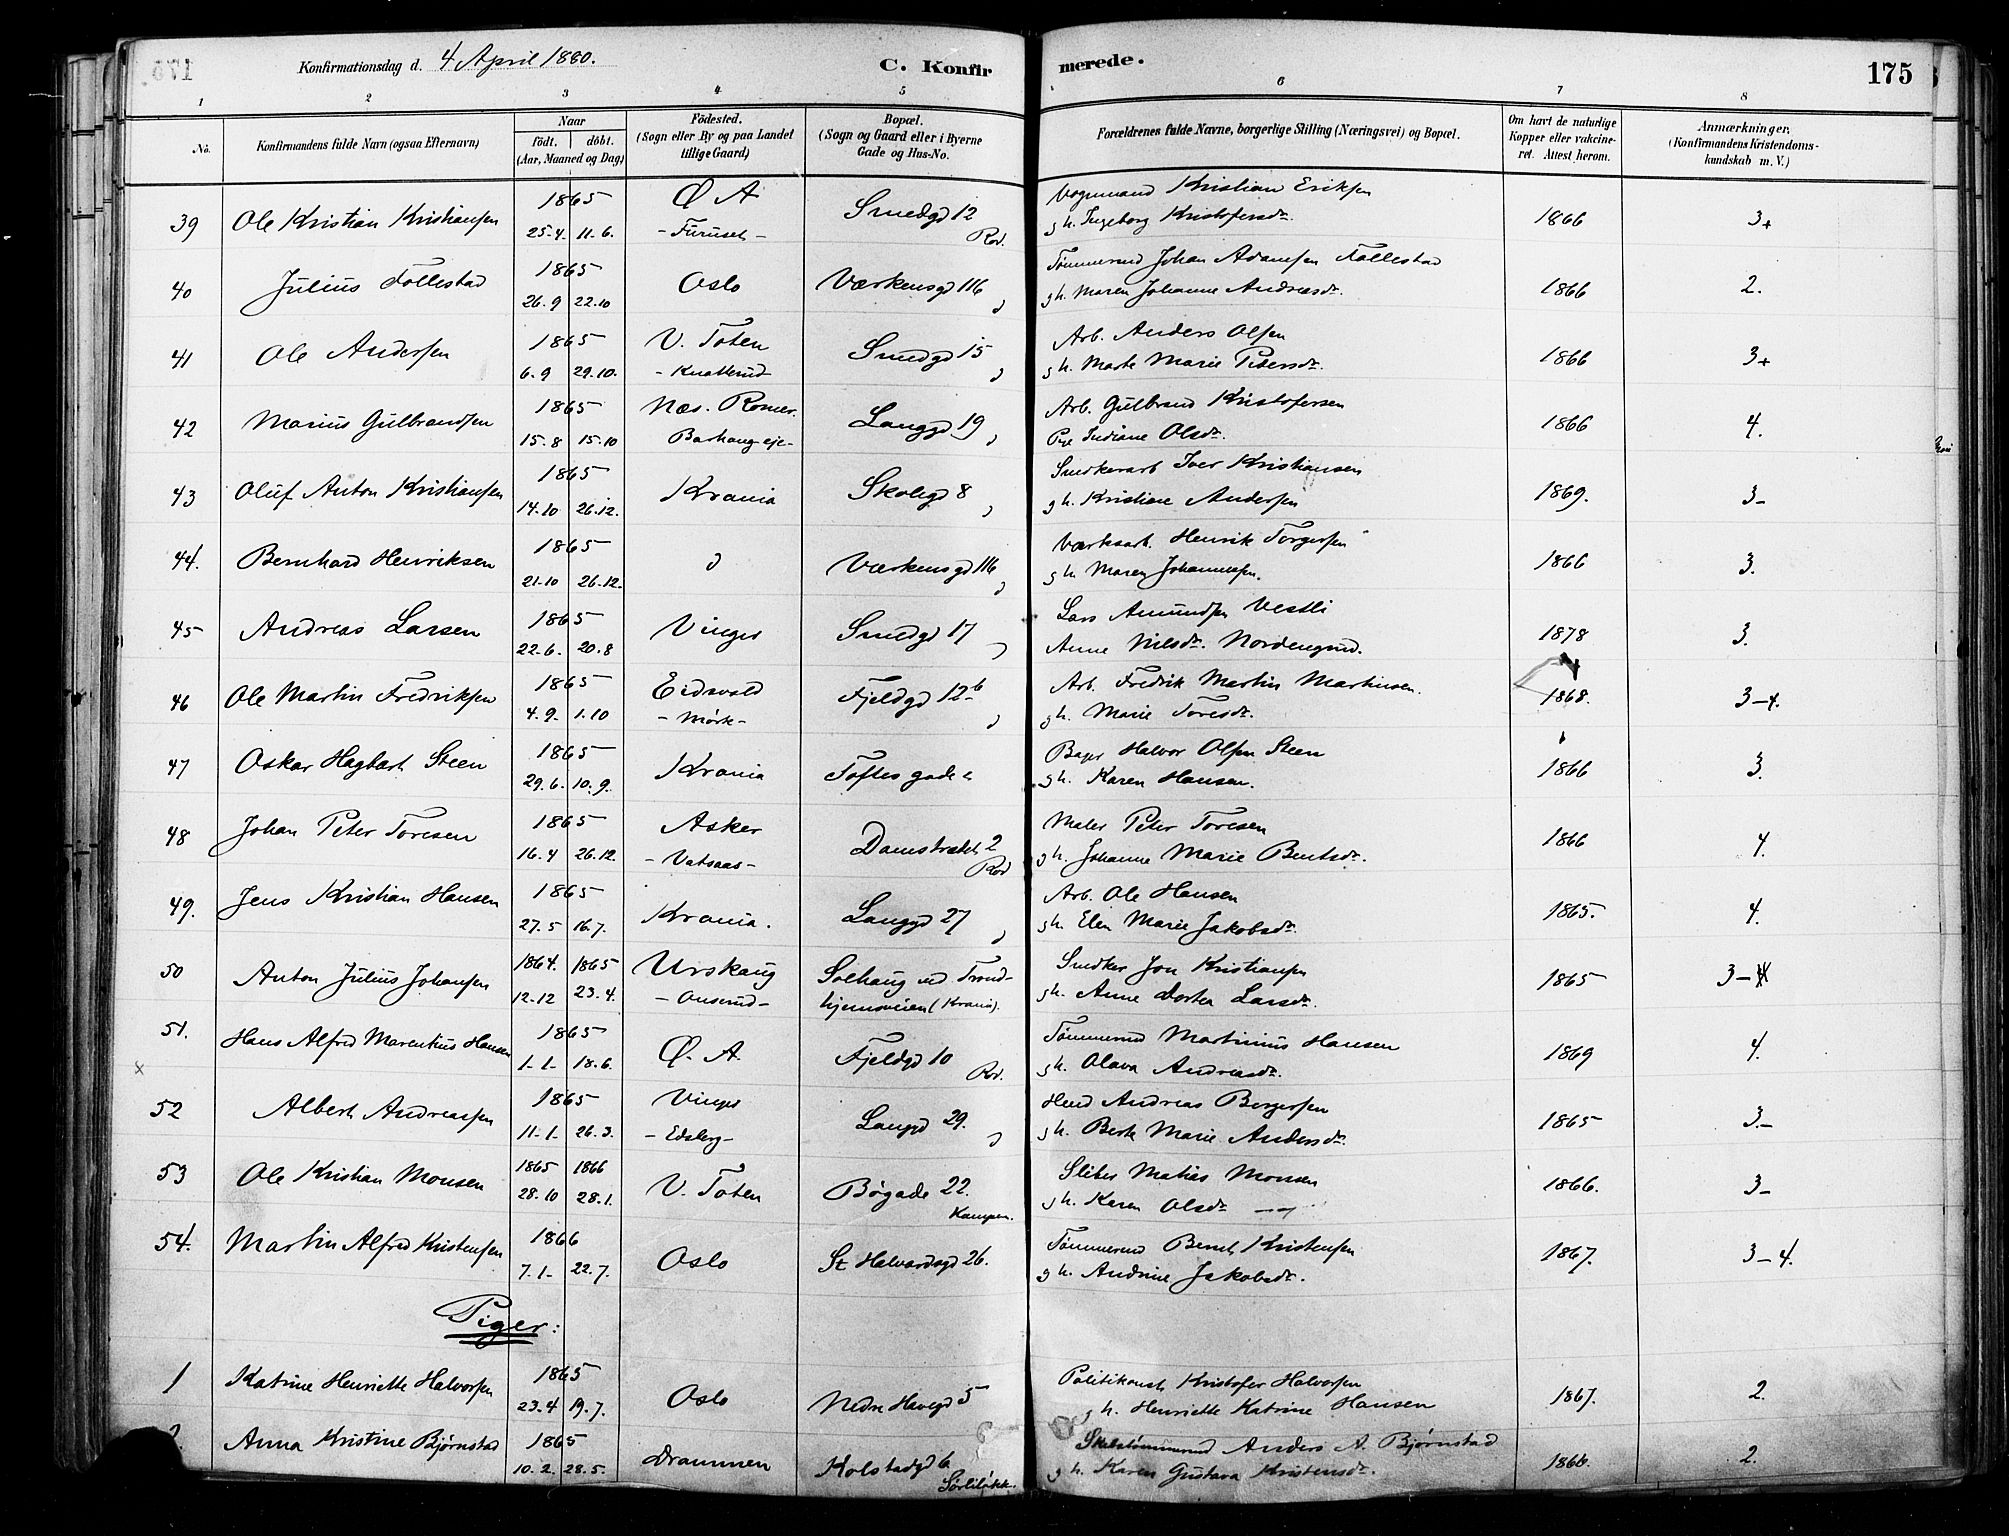 Konfirmationsdag d. 4 April 1880.
C. Konfirmerede.
175
1 2 3 4 5 6 7 8
No.
Konfirmandens fulde Navn (ogsaa Efternavn)
Naar
født. døbt.
(Aar, Maaned og Dag)
Fødested.
(Sogn eller By og paa Landet
tillige Gaard)
Bopæl.
(Sogn og Gaard eller i Byerne
Gade og Hus-No.
Forældrenes fulde Navne, borgerlige Stilling (Næringsvei) og Bopæl.
Om havt de naturlige
Kopper eller vakcine-
ret. Attest herom.
Anmærkninger,
(Konfirmandens Kristendoms-
kundskab m. V.)
39 Ole Kristian Kristiansen 1865 Ø A Smedgd 12 Vognmand Kristian Eriksen 1866 3+
25-4. 11.6. - Furuset - gh. Ingeborg Kristofersdr.
40 Julius Follestad 1865 Oslo Værkensgd 116 Tømmermd Johan Adamsen Follestad 1866 2.
26.9 22.10 gh. Maren Johanne Andreasdr.
41 Ole Andersen 1865 V. Toten Smedgd 15 Arb. Anders Olsen 1866 3+
6.9 29.10. - Knatterud - gh. Marte Marie Petersdr.
42 Marius Gulbrandsen 1865 Næs. Romer. Langgd 19 Arb. Gulbrand Kristofersen 1866 4.
15.8 15.10 Pge Indiane Olsdr.
43 Oluf Anton Kristiansen 1865 Krania Skolegd 8 Snedkerarb Iver Kristiansen 1869. 3-
14.10 26.12. gh. Kristiane Andersen
44. Bernhard Henriksen 1865 Værkensgd 116 Værksarb. Henrik Torgersen 1866 3.
21.10 26.12. gh. Maren Johannesen.
45 Andreas Larsen 1865 Vinger Smedgd 17 Lars Amundsen Vestli 1878 3.
22.6. 20.8 Anne Nilsdr. Nordengrud.
46 Ole Martin Fredriksen 1865 Eidsvold Fjeldgd 12b Arb. Fredrik Martin Martinsen. 1868. 3-4.
4.9. 1.10 - Mørk - gh. Marie Toresdr.
47 Oskar Hagbart Steen 1865 Krania Toftes gade Bager Halvor Olsen Steen 1866 3.
29.6. 10.9. gh. Karen Hansen.
48 Johan Peter Toresen 1865 Asker Damstrædet 2 Maler Peter Toresen 1866 4.
16.4 26.12. - Vatsaas - gh. Johanne Marie Bentsdr.
49. Jens Kristian Hansen 1865 Krania. Langgd 27 Arb. Ole Hansen 1865. 4.
27.5 16.7. gh. Elen Marie Jakobsdr.
50 Anton Julius Johansen 1864. 1865 Urskaug Solhaug ved Trond- Snedker Jon Kristiansen 1865
12.12 23.4. - Onserud - hjemsveien (Krania). gh. Anne Dortea Larsdr.
51. Hans Alfred Marentius Hansen 1865 Ø. A. Fjeldgd 10 Tømmermd Martinius Hansen 1869 4.
1-1- 18.6. gh. Olava Andreasdr.
52 Albert Andreassen 1865 Vinger Langgd 29. Andreas Borgersen 1865 3.-
11-1- 26.3. - Edsberg - gh. Berte Marie Andersdr.
53 Ole Kristian Monsen 1865 1866 V. Toten Bøgade 22. Sliber Matias Monsen 1866. 3-
28.10 28.1. Kampen. gh. Karen Olsdr
54. Martin Alfred Kristensen 1866 Oslo St Halvardsgd 26. Tømmermd Bernt Kristensen 1867. 3-4.
7.1- 22.7. gh. Andrine Jakobsdr.
Piger:
1 Katrine Henriette Halvorsen 1865 Oslo Nedre Havegd 5 Politikonst Kristofer Halvorsen 1867. 2.
23.4 19.7. gh. Henriette Katrine Hansen
2. Anna Kristine Bjørnstad 1865 Drammen Kolstadgd 6 Skibstømmermd Anders A. Bjørnstad 1866. 2.
10.2. 28.5. Sørliløkk. gh. Karen Gustava Kristensdr.